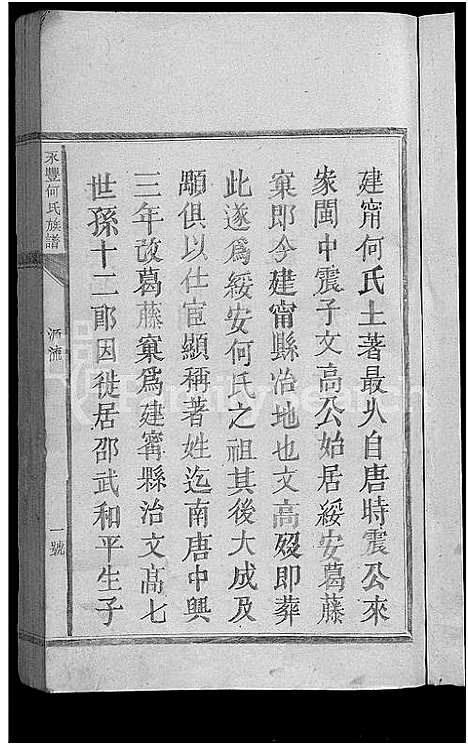 建甯何氏土著最久自唐時震公來
家閩中震子文高公始居綏安葛藤
窠即今建甯縣治地也文高歿即葬
此遂為綏安何氏之祖其後大成及
顒俱以仕宦顯稱著姓迄南唐中興
三年改葛藤窠為建甯縣治文高七
世孫十二郎因徙居邵武和平生子
永豐何氏族譜
源流
一號
familysearch